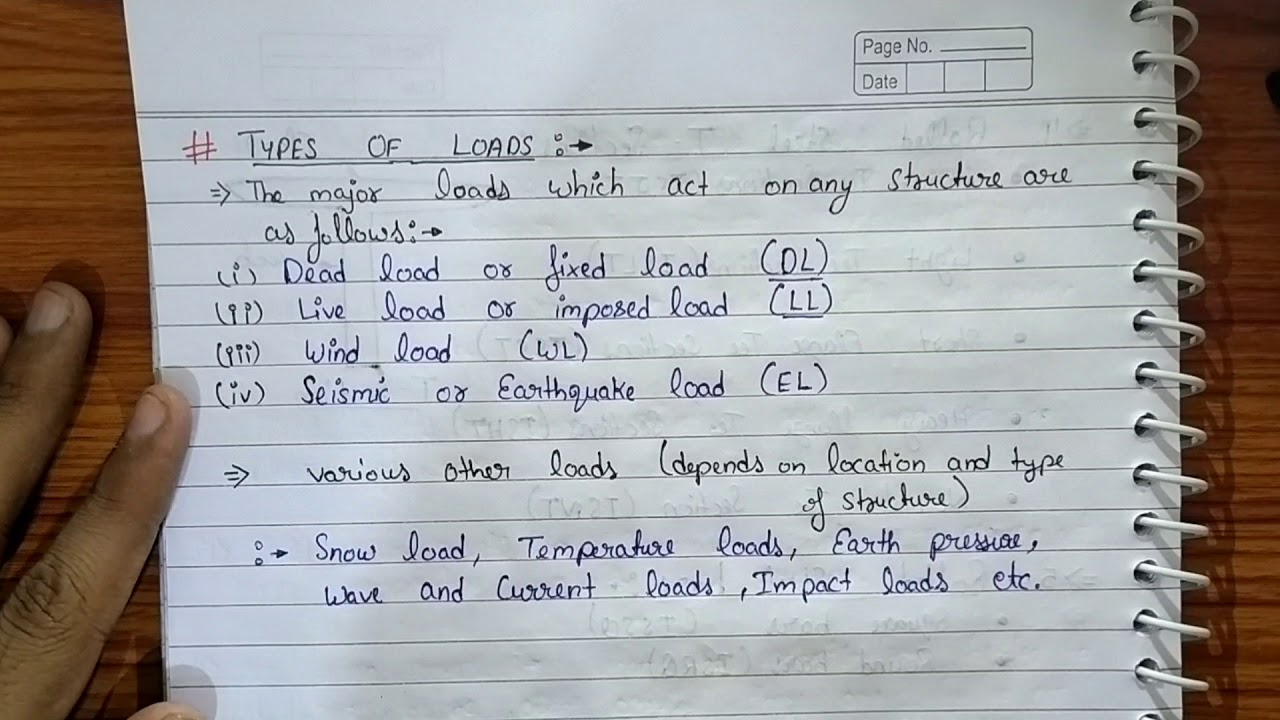 Page No.
Date
# TYPES OF LOADS :→
⇒ The major loads which act on any structure are
as follows:→
(i) Dead load or fixed load (DL)
(ii) Live load or imposed load (LL)
(iii) Wind load (WL)
(iv) Seismic or Earthquake load (EL)
⇒ various other loads (depends on location and type
of structure)
:→ Snow load, Temperature loads, Earth pressure,
Wave and Current loads, Impact loads etc.